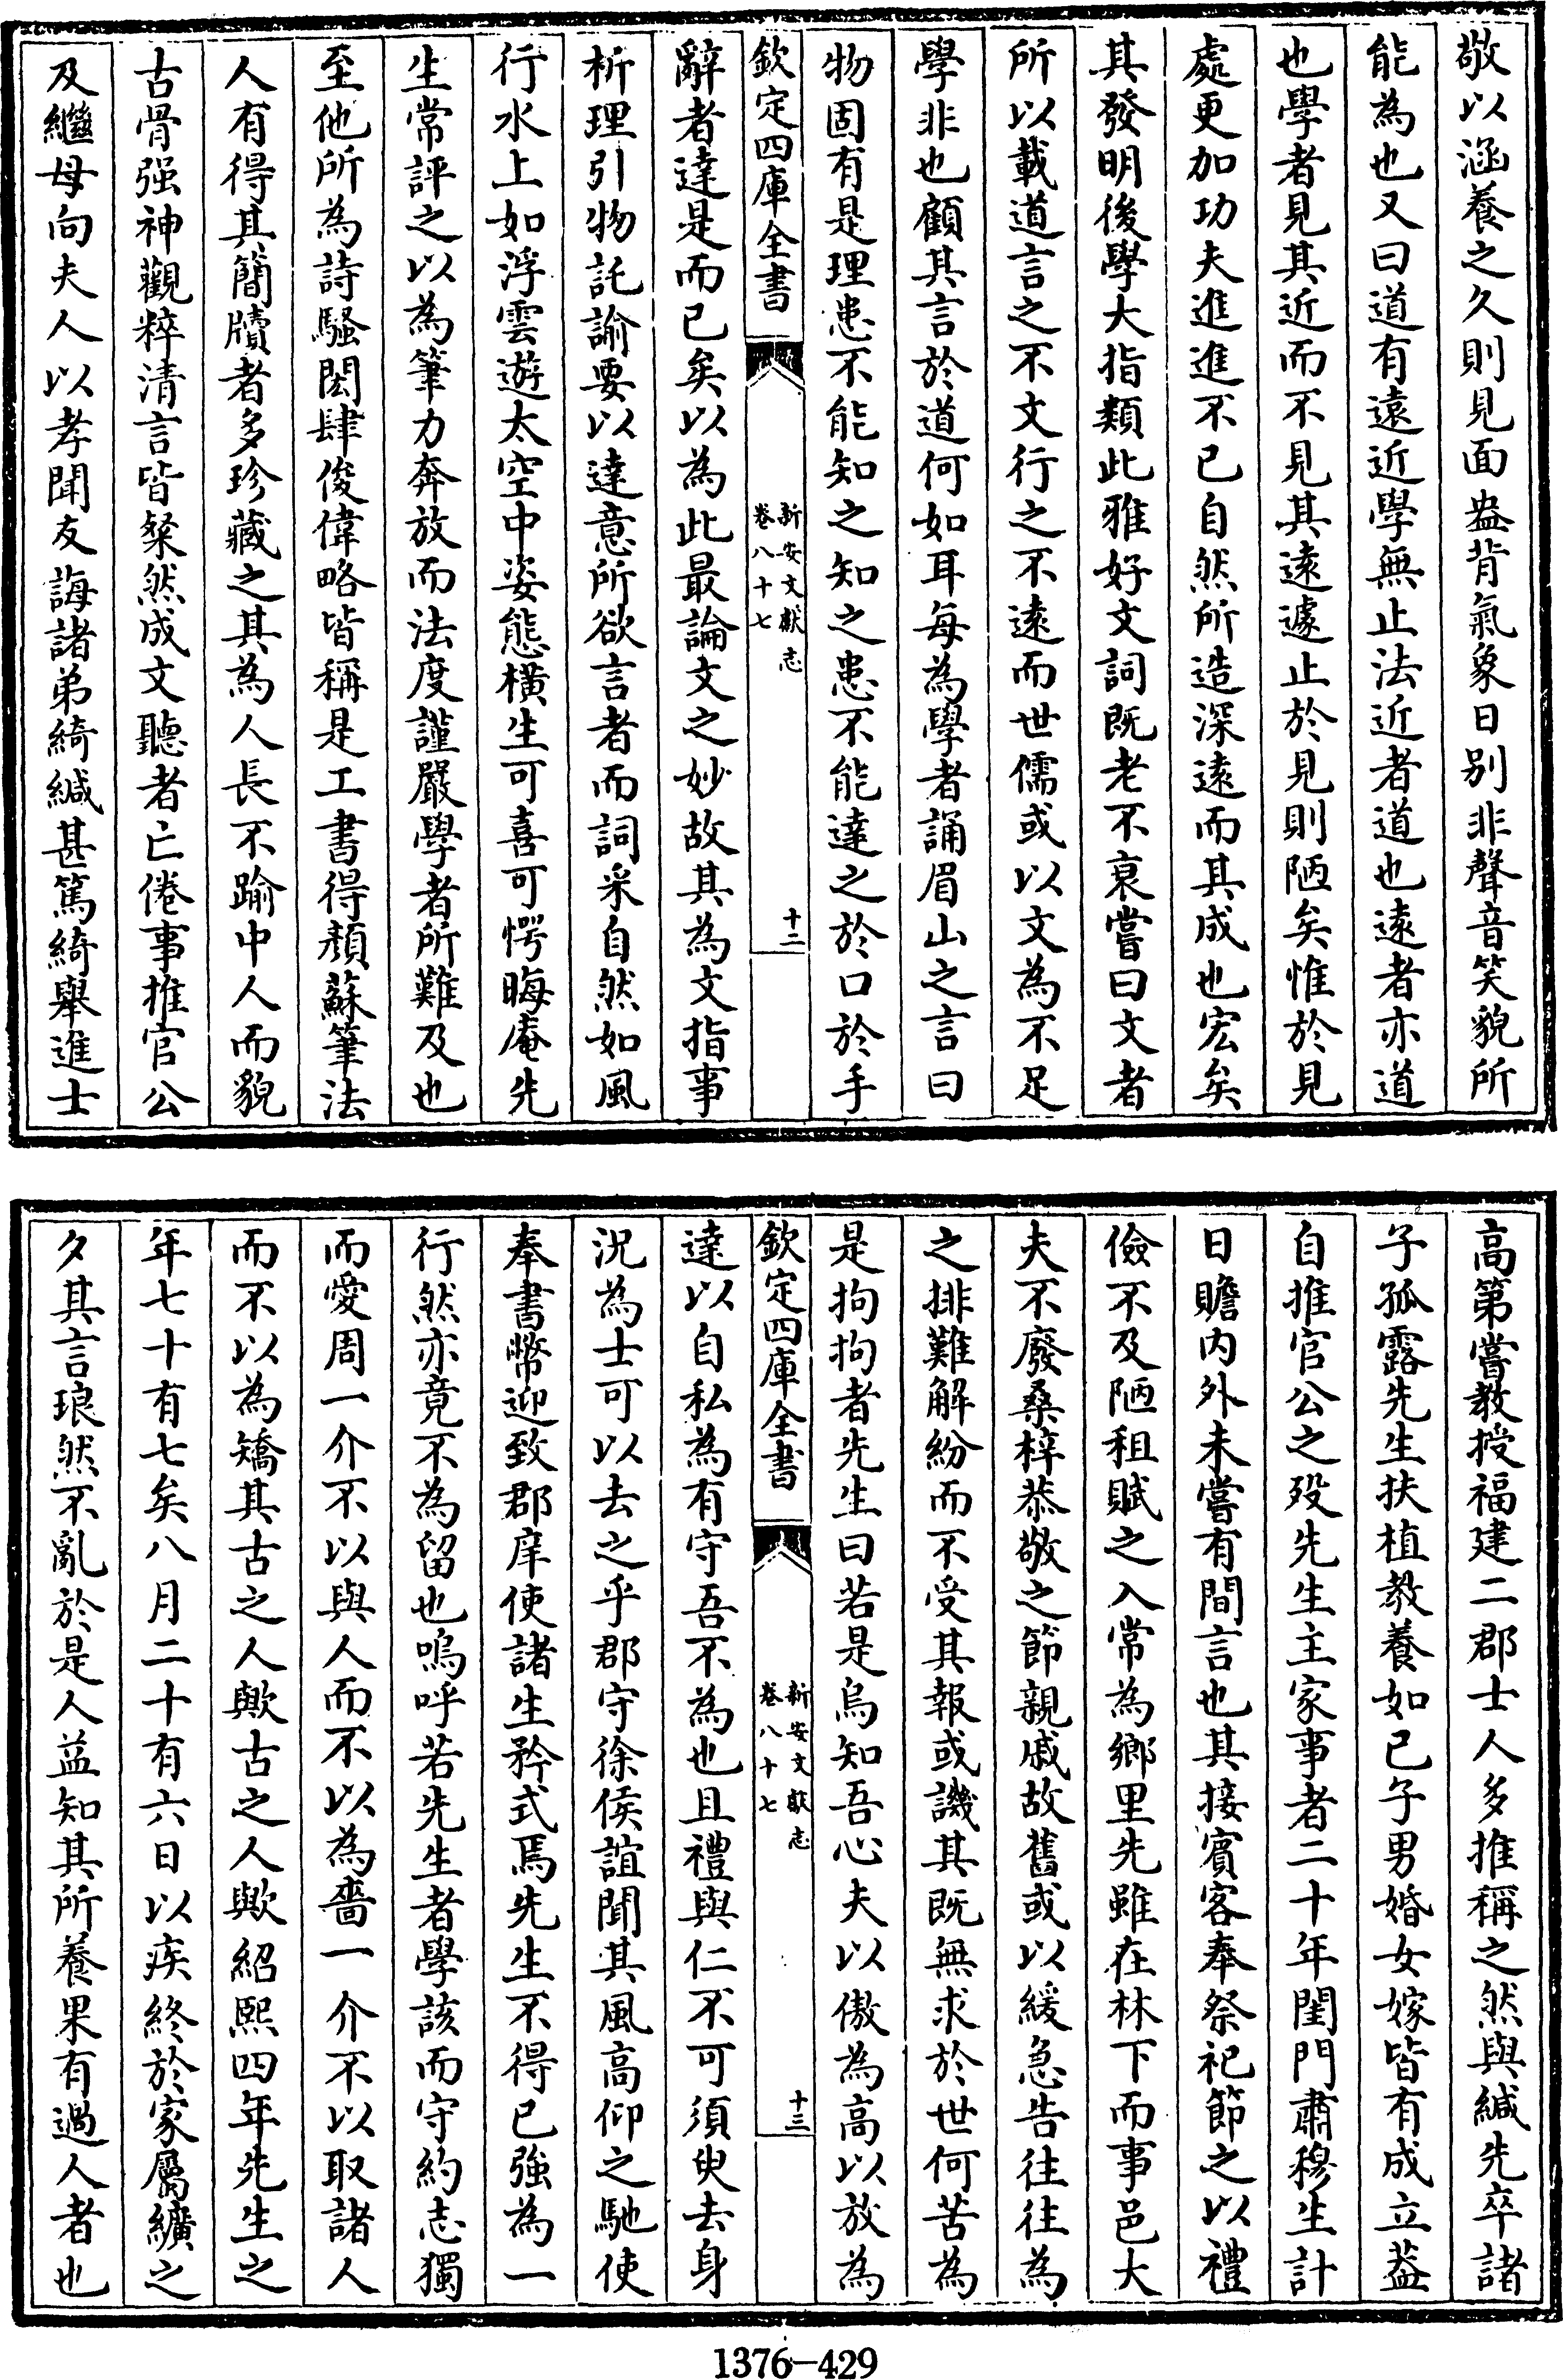 敬以涵養之久則見面盎背氣象日別非聲音笑貌所
能為也又曰道有遠近學無止法近者道也遠者亦道
也學者見其近而不見其遠遽止於見則陋矣惟於見
處更加功夫進進不已自然所造深遠而其成也宏矣
其發明後學大指類此雅好文詞既老不衰嘗曰文者
所以載道言之不文行之不遠而世儒或以文為不足
學非也顧其言於道何如耳每為學者誦眉山之言曰
物固有是理患不能知之知之患不能達之於口於手
欽定四庫全書
新安文獻志
卷八十七
十二
辭者達是而已矣以為此最論文之妙故其為文指事
析理引物託諭要以達意所欲言者而詞采自然如風
行水上如浮雲遊太空中姿態橫生可喜可愕晦庵先
生常評之以為筆力奔放而法度謹嚴學者所難及也
至他所為詩騷閎肆俊偉略皆稱是工書得顏蘇筆法
人有得其簡牘者多珍藏之其為人長不踰中人而貌
古骨强神觀粹清言皆粲然成文聽者亡倦事推官公
及繼母向夫人以孝聞友誨諸弟綺緘甚篤綺舉進士
高第嘗教授福建二郡士人多推稱之然與緘先卒諸
子孤露先生扶植教養如己子男婚女嫁皆有成立葢
自推官公之歿先生主家事者二十年閨門肅穆生計
日贍内外未嘗有間言也其接賓客奉祭祀節之以禮
儉不及陋租賦之入常為鄉里先雖在林下而事邑大
夫不廢桑梓恭敬之節親戚故舊或以緩急告往往為
之排難解紛而不受其報或譏其既無求於世何苦為
是拘拘者先生曰若是烏知吾心夫以傲為高以放為
欽定四庫全書
新安文獻志
卷八十七
十三
達以自私為有守吾不為也且禮與仁不可須臾去身
況為士可以去之乎郡守徐侯誼聞其風高仰之馳使
奉書幣迎致郡庠使諸生矜式焉先生不得已強為一
行然亦竟不為留也嗚呼若先生者學該而守約志獨
而愛周一介不以與人而不以為嗇一介不以取諸人
而不以為矯其古之人歟古之人歟紹熙四年先生之
年七十有七矣八月二十有六日以疾終於家屬纊之
夕其言琅然不亂於是人益知其所養果有過人者也
1376-429